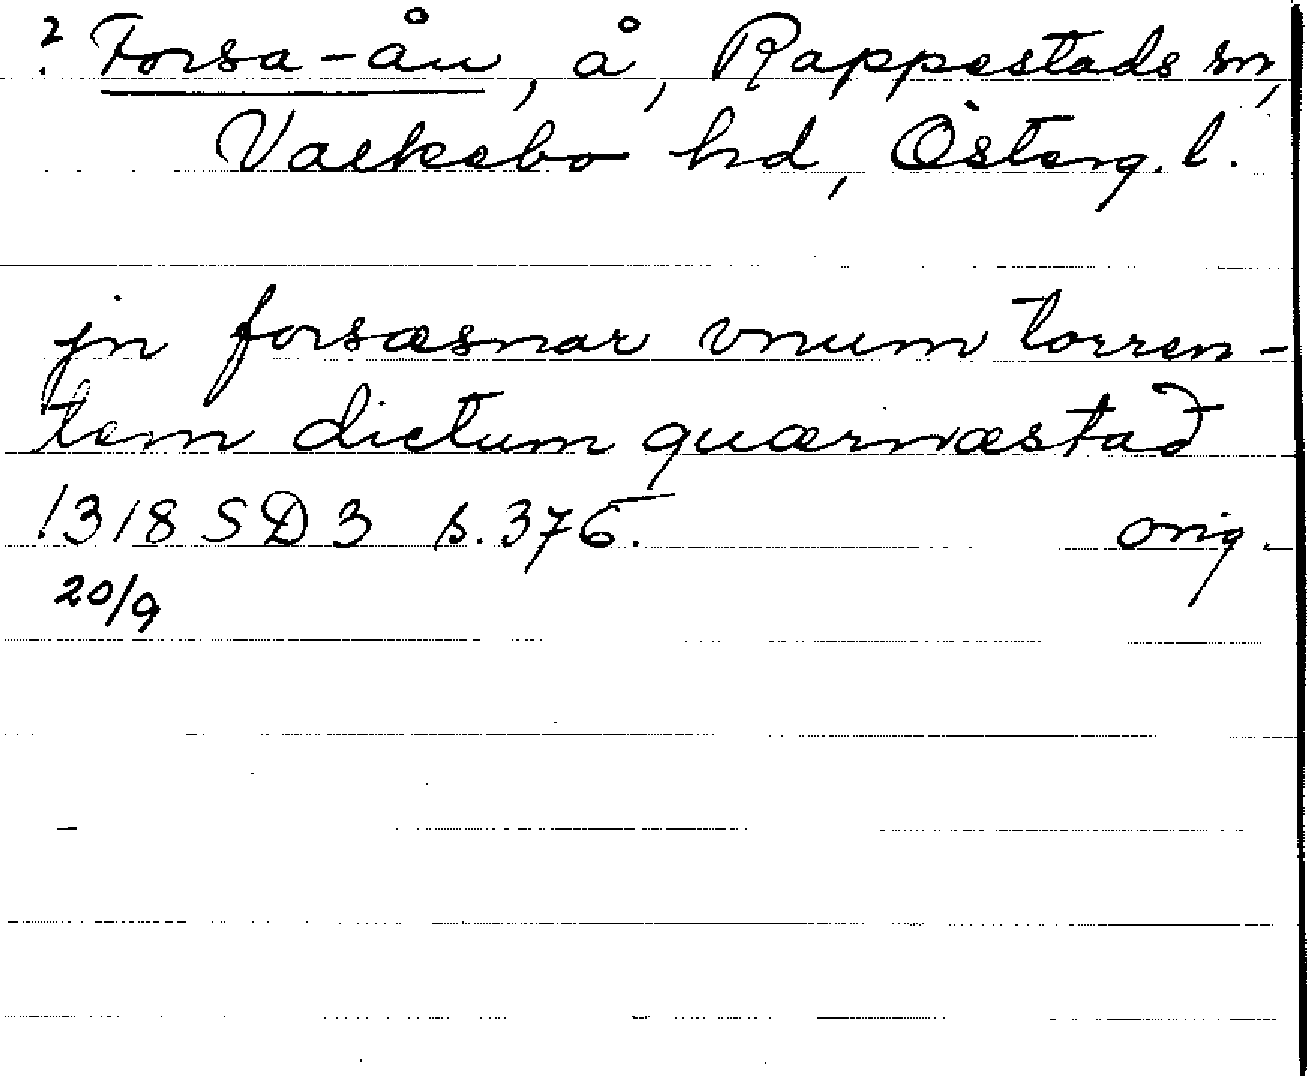 ? Forsa-ån, å, Rappestads sn,
Valkebo hd, Österg. l.
jn forsæsnar vnum torren-
tem dictum quærnæstad
1318 SD3 s. 376. orig.
20/9